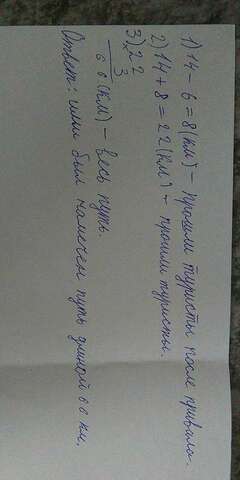 1) 14 - 6 = 8 (км) - прошли туристы после привала.
2) 14 + 8 = 22 (км) - прошли туристы.
3) 22
3
66 (км) - весь путь.
Ответ: ими был намечен путь длиной 66 км.